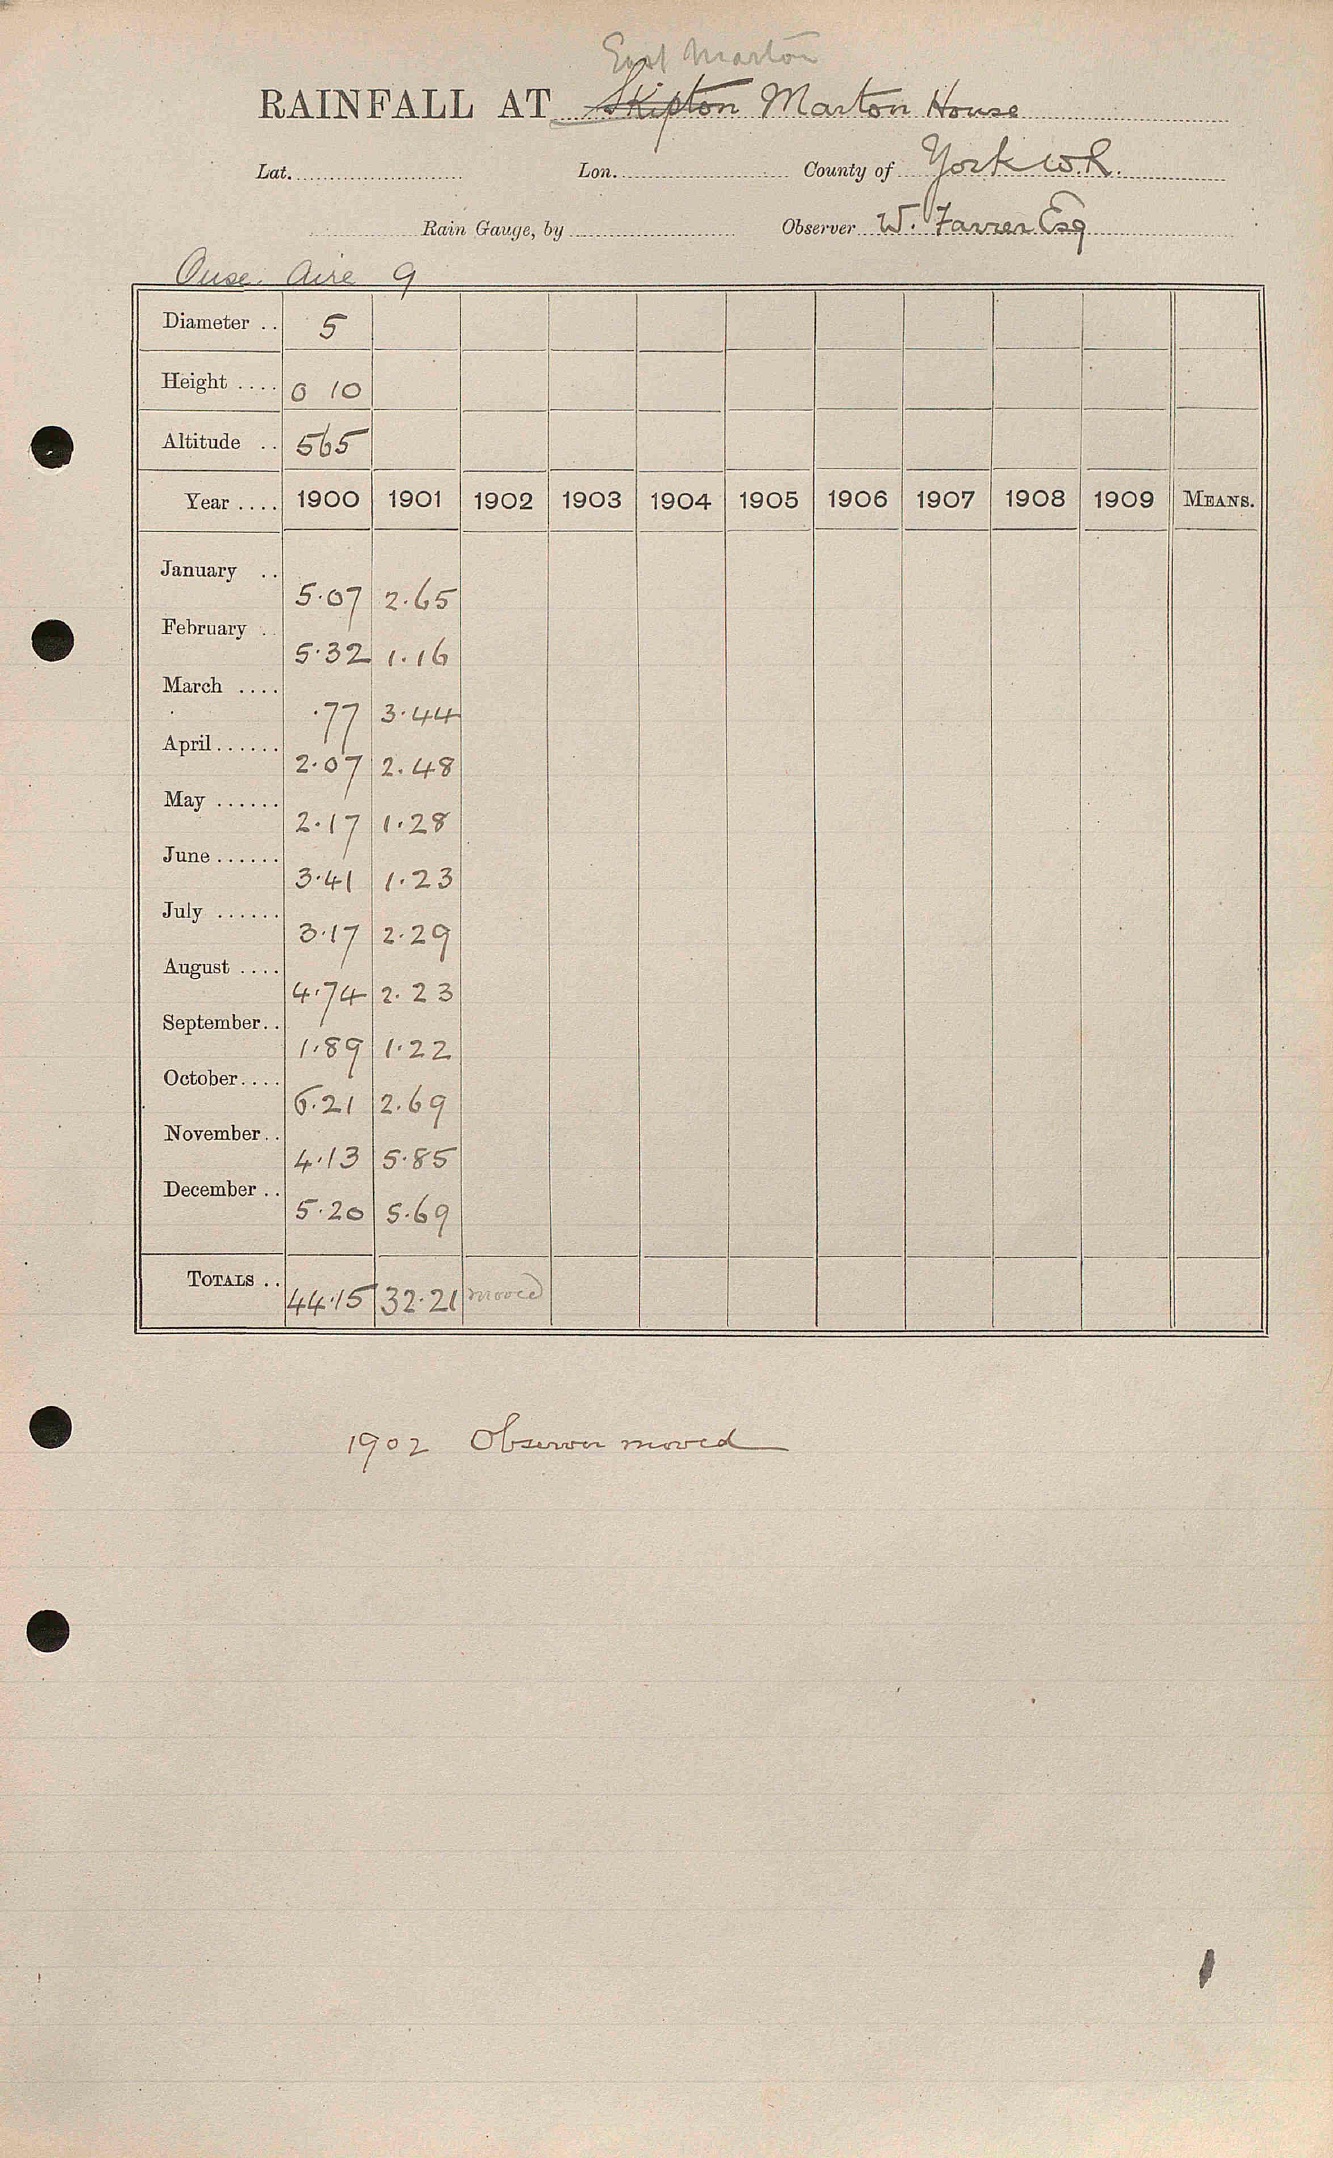 East Marton
RAINFALL AT Skipton Marton House
Lat. Lon. County of York W.R.
Rain Gauge, by Observer W. Farrer Esq
Ouse. Aire 9
Diameter .. 5
Height .... 0 10
Altitude .. 565
Year .... 1900 1901 1902 1903 1904 1905 1906 1907 1908 1909 MEANS.
January .. 5.07 2.65
February .. 5.32 1.16
March .... .77 3.44
April ...... 2.07 2.48
May ...... 2.17 1.28
June ...... 3.41 1.23
July ...... 3.17 2.29
August .... 4.74 2.23
September.. 1.89 1.22
October.... 6.21 2.69
November.. 4.13 5.85
December .. 5.20 5.69
TOTALS .. 44.15 32.21 moved
1902 Observer moved